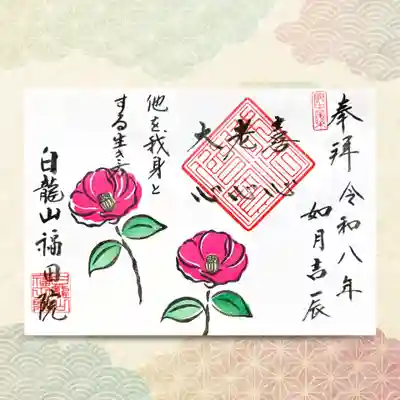 奉拝
令和八年
如月吉辰
喜心
老心
大心
他を我身と
する生き方
白龍山福田院